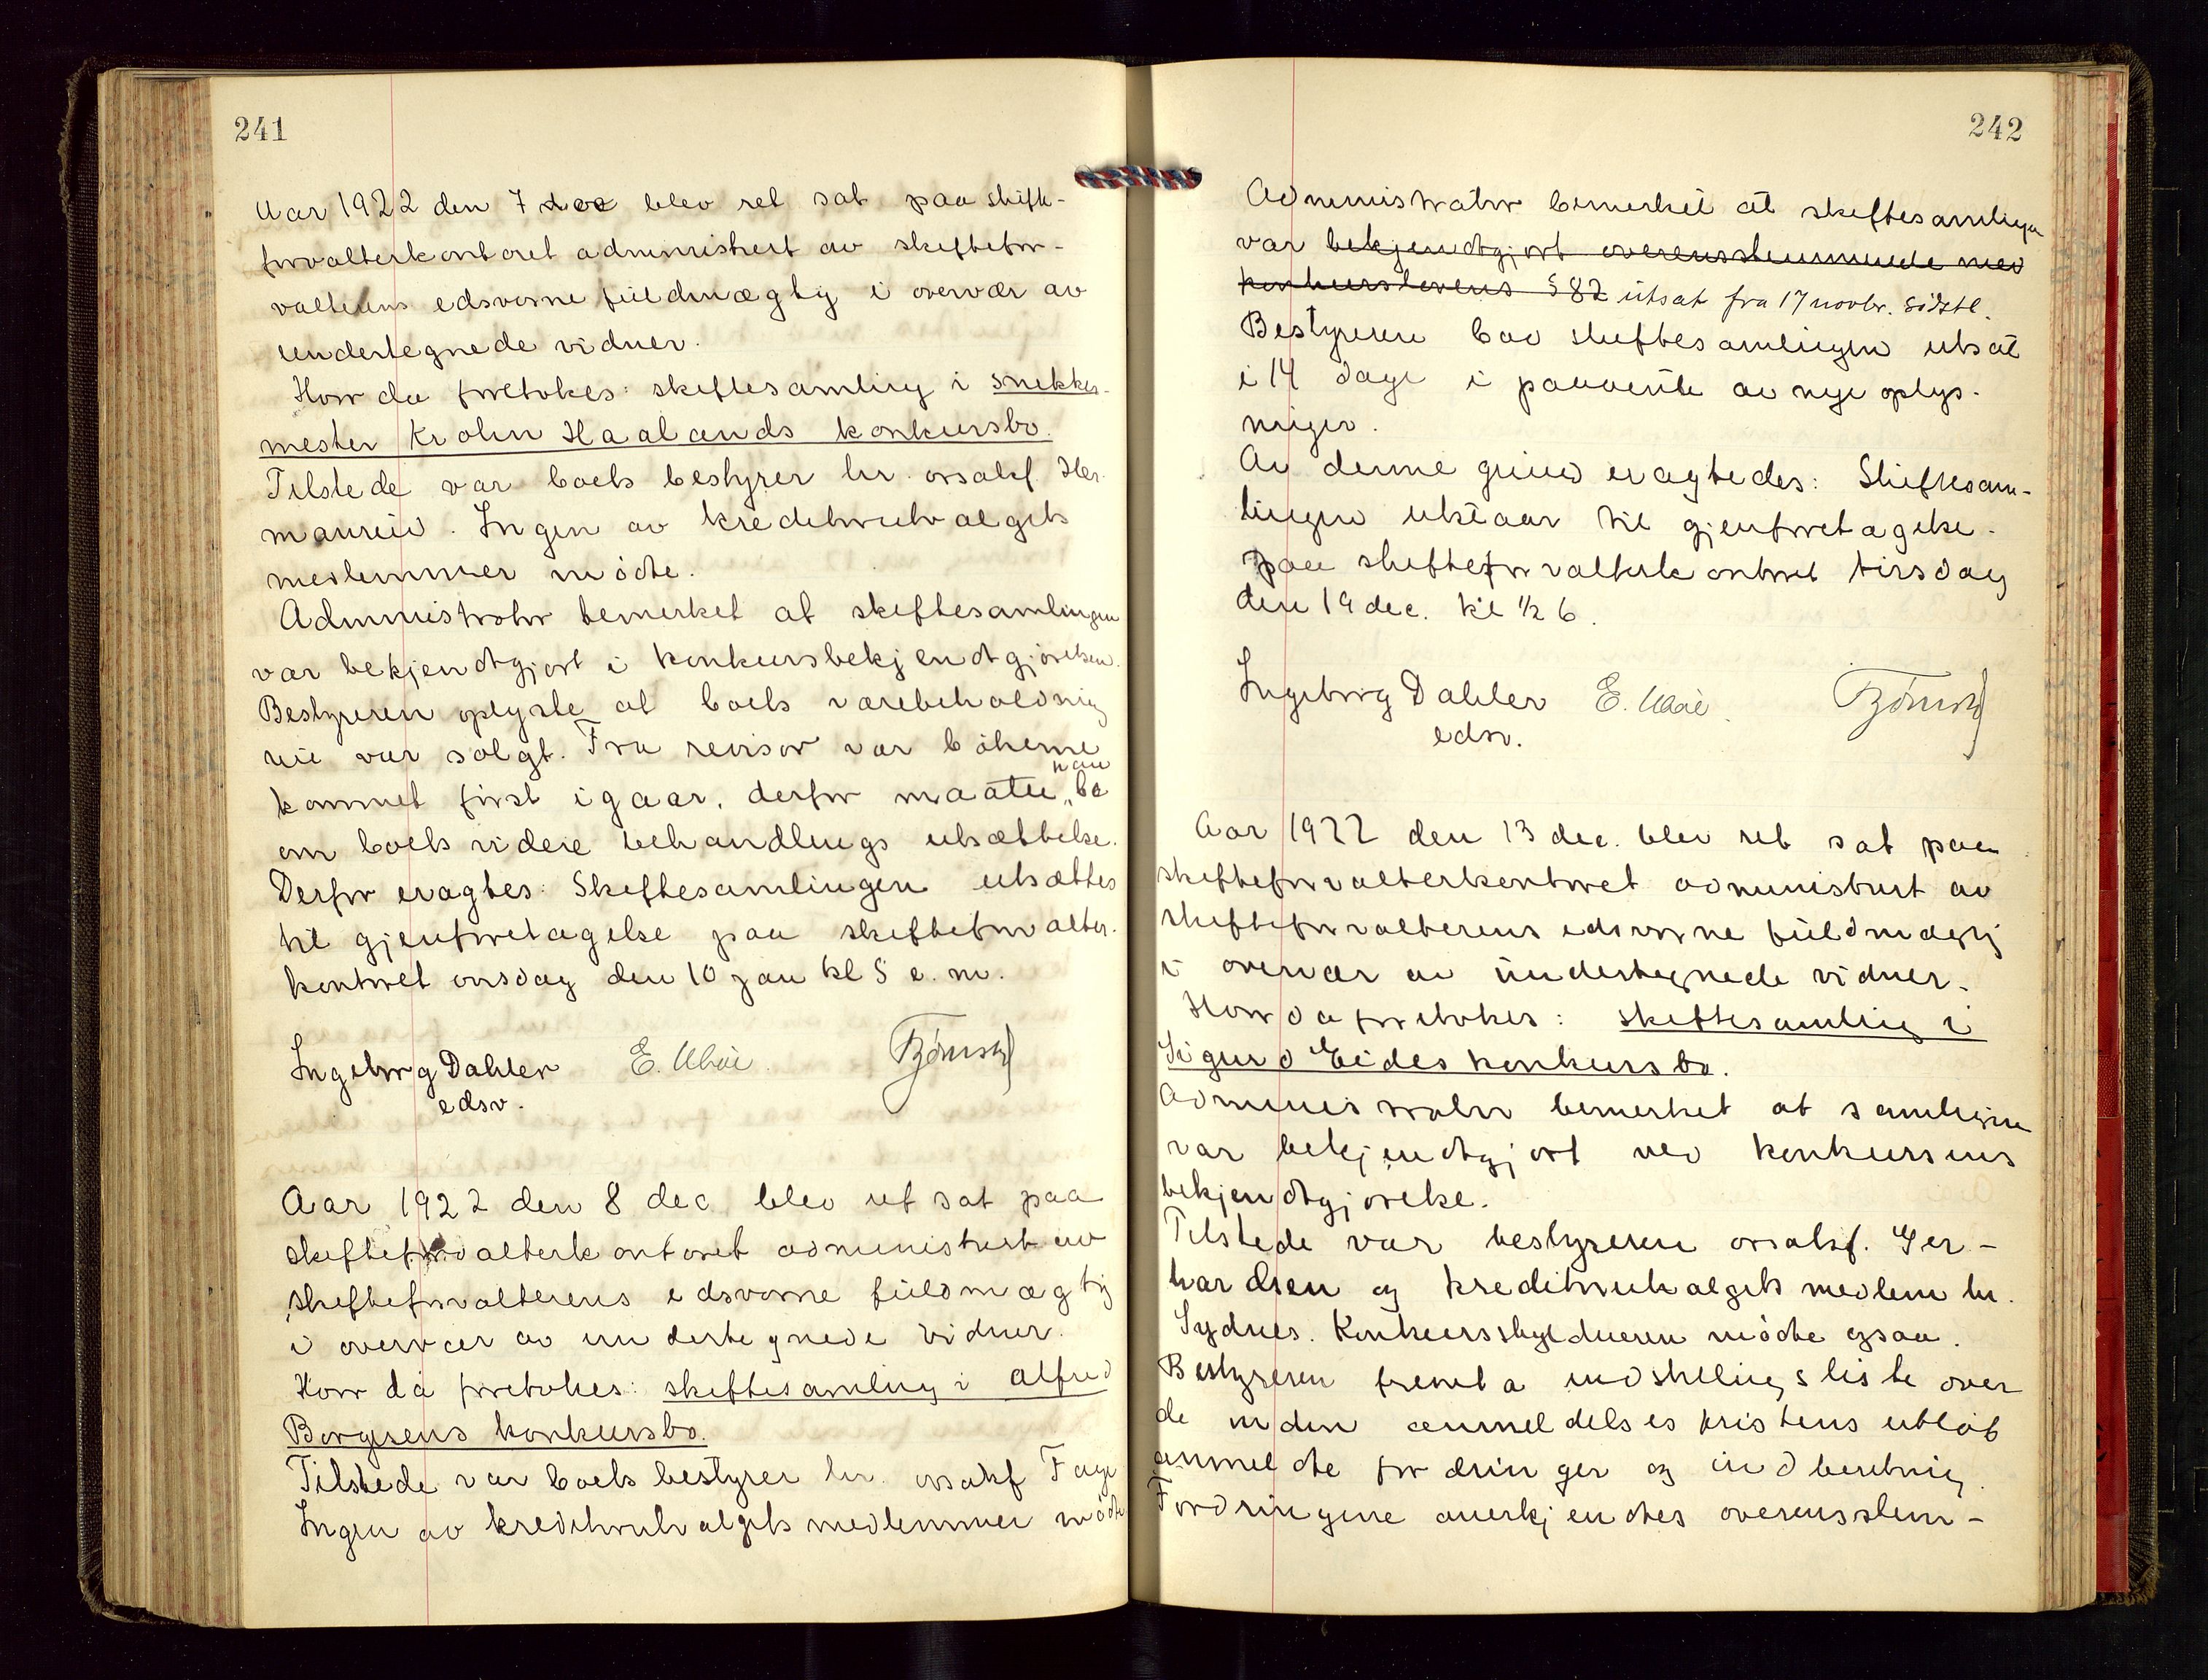 241
Aar 1922 den 7 dec blev ret sat paa skifte-
forvalterkontoret administrert av skiftefor-
valterens edsvorne fuldmægtig i overvær av
undertegnede vidner.
Hvor da foretokes: skiftesamling i snekker-
mester Krohn Haalands konkursbo.
Tilstede var boets bestyrer hr. orsakf. Her-
manrud. Ingen av kreditorutvalgets
medlemmer møtte.
Administrator bemerket at skiftesamlingen
var bekjendtgjort i konkursbekjendtgjørelsen.
Bestyreren oplyste at boets varebeholdning
nu var solgt. Fra revisor var bøkerne
kommet først igaar, derfor maatte han be
om boets videre behandlings utsættelse.
Derfor eragtes: Skiftesamlingen utsættes
til gjenforetagelse paa skifteforvalter-
kontoret onsdag den 10 jan kl 5 e.m.
Ingeborg Dahler E.
edsv.
Aar 1922 den 8 dec blev ret sat paa
skifteforvalterkontoret administrert av
skifteforvalterens edsvorne fuldmægtig
i overvær av undertegnede vidner.
Hvor da foretokes: skiftesamling i Alfred
Borgrens konkursbo.
Tilstede var boets bestyrer hr. orsakf Fage
Ingen av kreditorutvalgets medlemmer møtte
242
Administrator bemerket at skiftesamlingen
var bekjendtgjort overensstemmende med
konkurslovens § 82 utsat fra 17 novbr. sidstl.
Bestyreren bad skiftesamlingen utsat
i 14 dage i paavente av nye oplys-
ninger.
Av denne grund eragtedes: Skiftesam-
lingen utstaar til gjenforetagelse
paa skifteforvalterkontoret tirsdag
den 19 dec. kl 1/2 6.
Ingeborg Dahler E.
edsv.
Aar 1922 den 13 dec. blev ret sat paa
skifteforvalterkontoret administrert av
skifteforvalterens edsvorne fuldmægtig
i overvær av undertegnede vidner.
Hvor da foretokes: skiftesamling i
Sigurd Eides konkursbo.
Administrator bemerket at samlingen
var bekjendtgjort ved konkursens
bekjendtgjørelse.
Tilstede var bestyreren orsakf. Ger-
hardsen og kreditorutvalgets medlem hr.
Sydnes. Konkursskyldneren møtte ogsaa.
Bestyreren fremla indstillingsliste over
de inden anmeldelsesfristens utløb
anmeldte fordringer og indberetning.
Fordringene anerkjendtes overensstem-